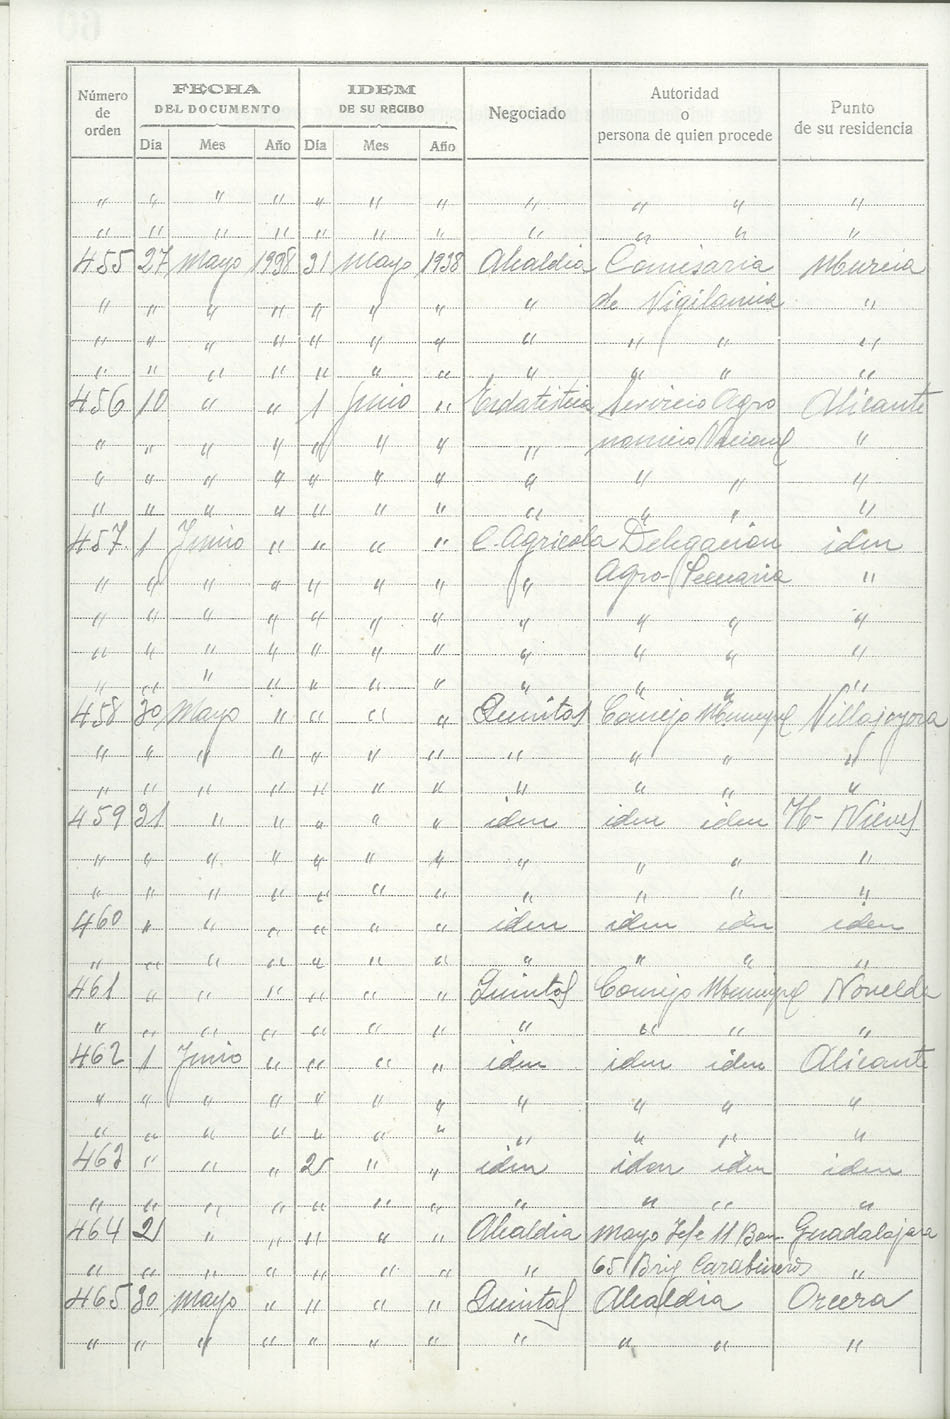 Número de orden FECHA DEL DOCUMENTO IDEM DE SU RECIBO Negociado Autoridad o persona de quien procede Punto de su residencia
Día Mes Año Día Mes Año
" " " " " " " " " " "
" " " " " " " " " " "
455 27 Mayo 1938 31 Mayo 1938 Alcaldia Comisaria Murcia
" " " " " " " " de Vigilancia "
" " " " " " " " " " "
" " " " " " " " " " "
456 10 " " 1 Junio " Estatistica Servicio Agro Alicante
" " " " " " " " nomico Nacional "
" " " " " " " " " " "
" " " " " " " " " " "
457 1 Junio " " " " C. Agricola Delegación iden
" " " " " " " " Agro-Pecuaria "
" " " " " " " " " " "
" " " " " " " " " " "
" " " " " " " " " " "
458 30 Mayo " " " " Quintas Consejo Municipal Villajoyosa
" " " " " " " " " " "
" " " " " " " " " " "
459 31 " " " " " iden iden iden H- Nieves
" " " " " " " " " " "
" " " " " " " " " " "
460 " " " " " " iden iden iden iden
" " " " " " " " " " "
461 " " " " " " Quintas Consejo Municipal Novelda
" " " " " " " " " " "
462 1 Junio " " " " iden iden iden Alicante
" " " " " " " " " " "
" " " " " " " " " " "
463 " " " 2 " " iden iden iden iden
" " " " " " " " " " "
464 2 " " " " " Alcaldia Mayo Jefe 11 Bon Guadalajara
" " " " " " " " 65 Brig Carabineros "
465 30 Mayo " " " " Quintas Alcaldia Orcera
" " " " " " " " " " "